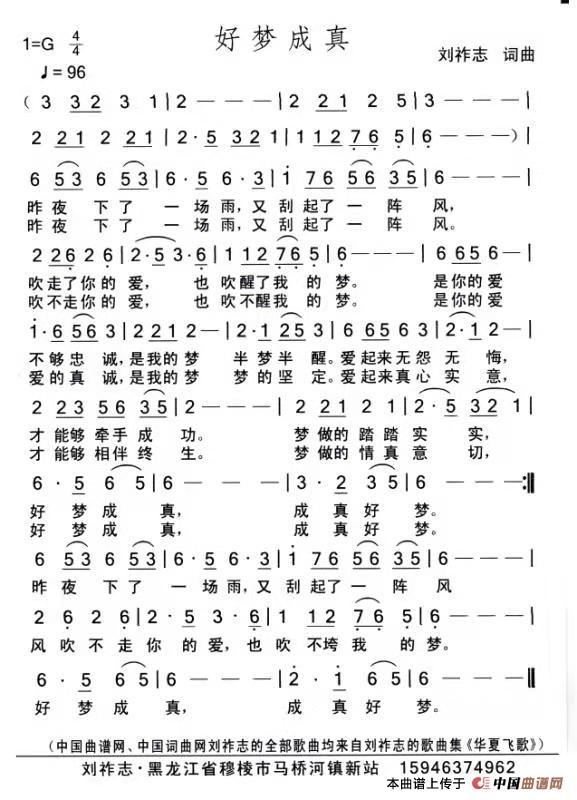 好梦成真
1=G 4/4
刘祚志 词曲
♩=96
(3 3 2 3 1 | 2 — — — | 2 2 2 1 2 5 | 3 — — — |
2 2 2 1 2 2 1 | 2 · 5 3 2 1 | 1 1 2 7 6 5 | 6 — — — ) |
6 5 3 6 5 3 | 6 · 5 6 · 3 | 1 7 6 5 6 3 5 | 6 — — — |
昨夜 下了 一场雨,又刮起了一阵风,
昨夜 下了 一场雨,又刮起了一阵风。
2 2 6 2 6 | 2 · 5 3 · 6 | 1 1 2 7 6 5 | 6 — — — | 6 6 5 6 |
吹走了你的爱, 也吹醒了我的梦。 是你的爱
吹不走你的爱, 也吹不醒我的梦。 是你的爱
1 · 6 5 6 3 | 2 2 1 2 — | 2 · 1 2 5 | 3 6 5 6 3 | 2 · 1 2 |
不够忠诚,是我的梦 半梦半醒。爱起来无怨无悔,
爱的真诚,是我的梦 梦的坚定。爱起来真心实意,
2 2 3 5 6 3 5 | 6 — — — | 2 2 1 2 1 | 2 · 5 3 2 1 |
才能够牵手成功。 梦做的踏踏实实,
才能够相伴终生。 梦做的情真意切,
6 · 5 6 5 | 6 — — — | 3 · 2 3 5 | 6 — — — :‖
好梦成真, 成真好梦。
好梦成真, 成真好梦。
6 5 3 6 5 3 | 6 · 5 6 · 3 | 1 7 6 5 6 3 5 | 6 — — — |
昨夜 下了 一场雨,又刮起了一阵风
2 6 2 6 | 2 · 5 3 · 6 | 1 1 2 7 6 5 | 6 — — — |
风吹不走你的爱,也吹不垮我的梦。
6 · 5 6 5 | 6 — — — | 2 · 6 5 6 | 6 — — — ‖
好梦成真, 成真好梦。
(中国曲谱网、中国词曲网刘祚志的全部歌曲均来自刘祚志的歌曲集《华夏飞歌》)
刘祚志·黑龙江省穆棱市马桥河镇新站 15946374962
本曲谱上传于 中国曲谱网